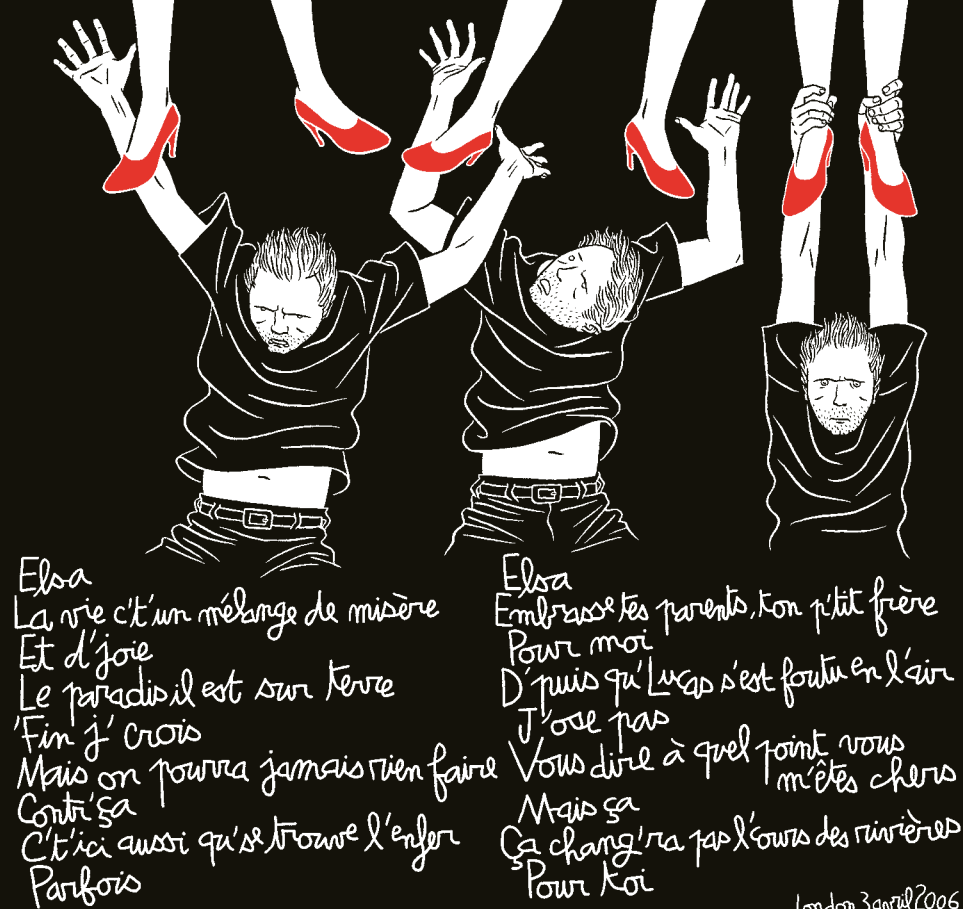 Elsa
La vie c't'un mélange de misère
Et d'joie
Le paradis il est sur terre
'Fin j' crois
Mais on pourra jamais rien faire
Contr'ça
C't'ici aussi qu'se trouve l'enfer
Parfois
Elsa
Embrasse tes parents, ton p'tit frère
Pour moi
D'puis qu'Lucas s'est foutu en l'air
J'ose pas
Vous dire à quel point vous
m'êtes chers
Mais ça
Ça chang'ra pas l'cours des rivières
Pour toi
London 3 avril 2006